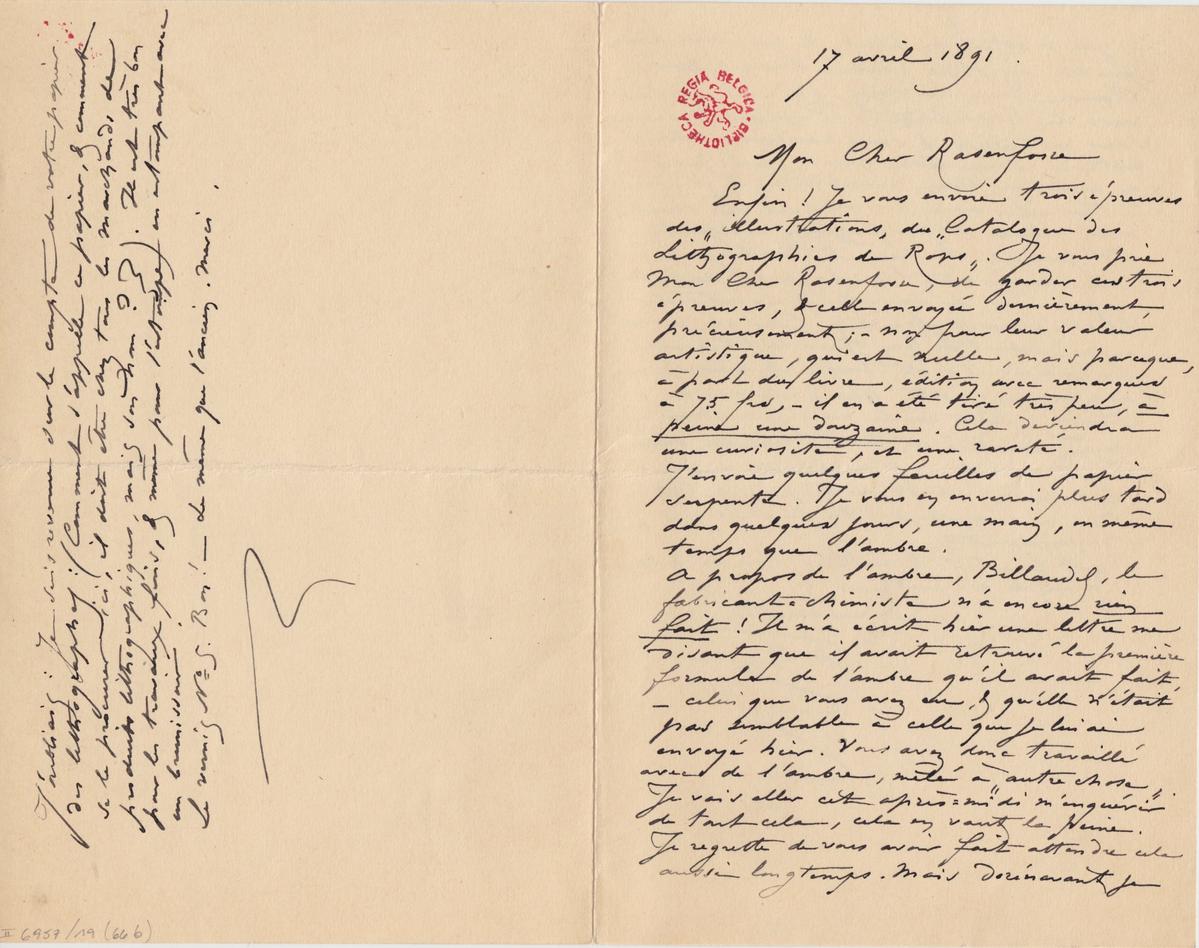 17 avril 1891.
REGIA BELGICA * BIBLIOTHECA
Mon Cher Rasenfosse
Enfin ! Je vous envoie trois épreuves
des „illustrations„ du „Catalogue des
Lithographies de Rops„. Je vous prie
Mon Cher Rasenfosse, de garder ces trois
épreuves, & celle envoyée dernièrement,
précieusement ; – non pour leur valeur
artistique, qui est nulle, mais parceque,
à part du livre, édition avec remarques
à 75 frs, – il en a été tiré très peu, à
peine une douzaine. Cela deviendra
une curiosité, et une rareté.
J'envoie quelques feuilles de papier
serpente. Je vous en enverrai plus tard
dans quelques jours, une main, en même
temps que l'ambre.
A propos de l'ambre, Billaudel, le
fabricant=chimiste n'a encore rien
fait ! Il m'a écrit hier une lettre me
disant que il avait retrouvé la première
formule de l'ambre qu'il avait fait
– celui que vous avez eu, & qu'elle n'était
pas semblable à celle que je lui ai
envoyé hier. Vous avez donc travaillé
avec de l'ambre, mêlé à „autre chose„.
Je vais aller cet après=midi m'enquérir
de tout cela, cela en vaut la peine.
Je regrette de vous avoir fait attendre cela
aussi longtemps. Mais dorénavant je
J'oubliais : Je suis revenu sur le compte de votre papier
des lithographes ! (Comment s'appelle ce papier, & comment
se le procurer ici, il doit être chez tous les marchands de
produits lithographiques, mais son nom ??). Il est très bon
pour les travaux fins, & même pour l'estompe, en estompant avec
un brunissoir.
Le vernis No 5. Bon ! – Le même que l'ancien. Merci.
II 6957/19 (66 b)